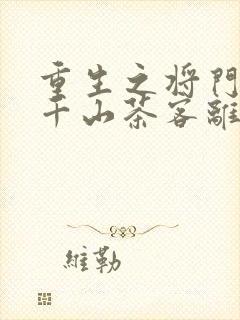 重生之将門
千山茶客離
維勒